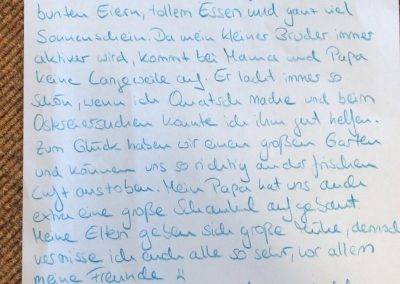 bunten Eiern, tollem Essen und ganz viel
Sonnenschein. Da mein kleiner Bruder immer
aktiver wird, kommt bei Mama und Papa
keine Langeweile auf. Er lacht immer so
schön, wenn ich Quatsch mache und beim
Ostereiersuchen konnte ich ihm gut helfen.
Zum Glück haben wir einen großen Garten
und können uns so richtig an der frischen
Luft austoben. Mein Papa hat uns auch
extra eine große Schaukel aufgebaut.
Meine Eltern geben sich große Mühe, dennoch
vermisse ich euch alle so sehr, vor allem
meine Freunde !!